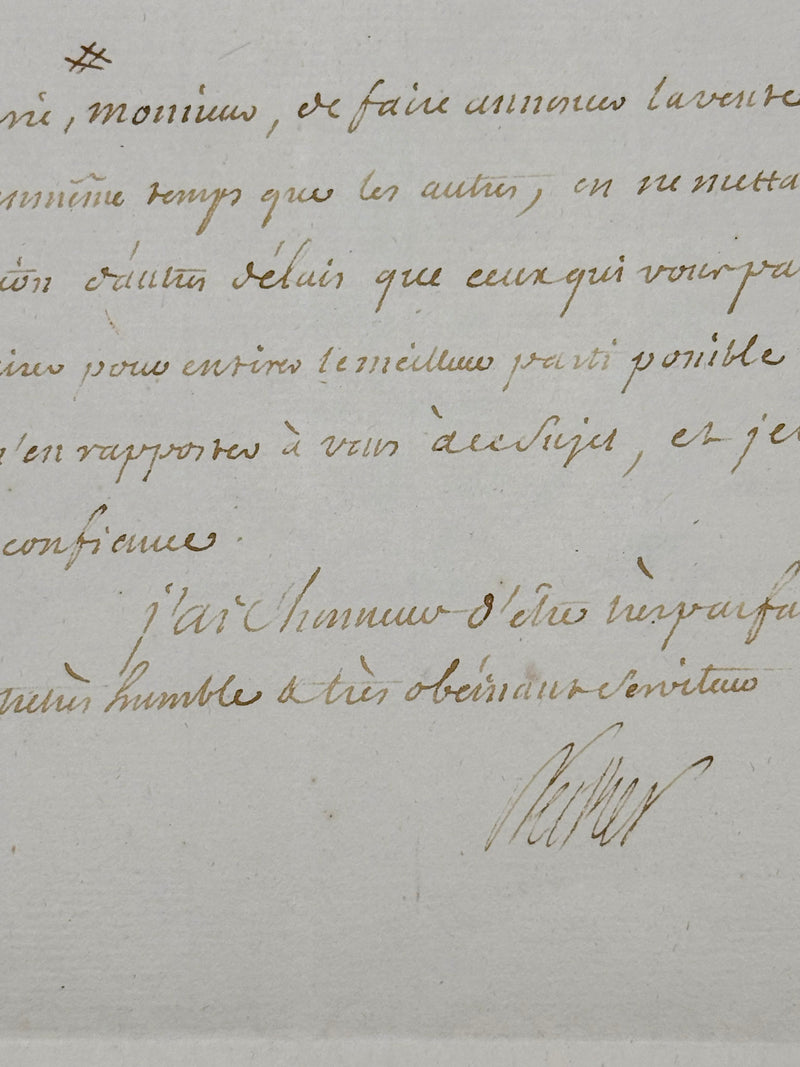 #
rie, monsieur, de faire annoncer la vente
en même temps que les autres, en ne metta
d'autres délais que ceux qui vous pa
pour en tirer le meilleur parti possible
m'en rapporter à vous à ce sujet, et je
confiance.
j'ai l'honneur d'être très parfa
tre très humble & très obéissant serviteur
Necker